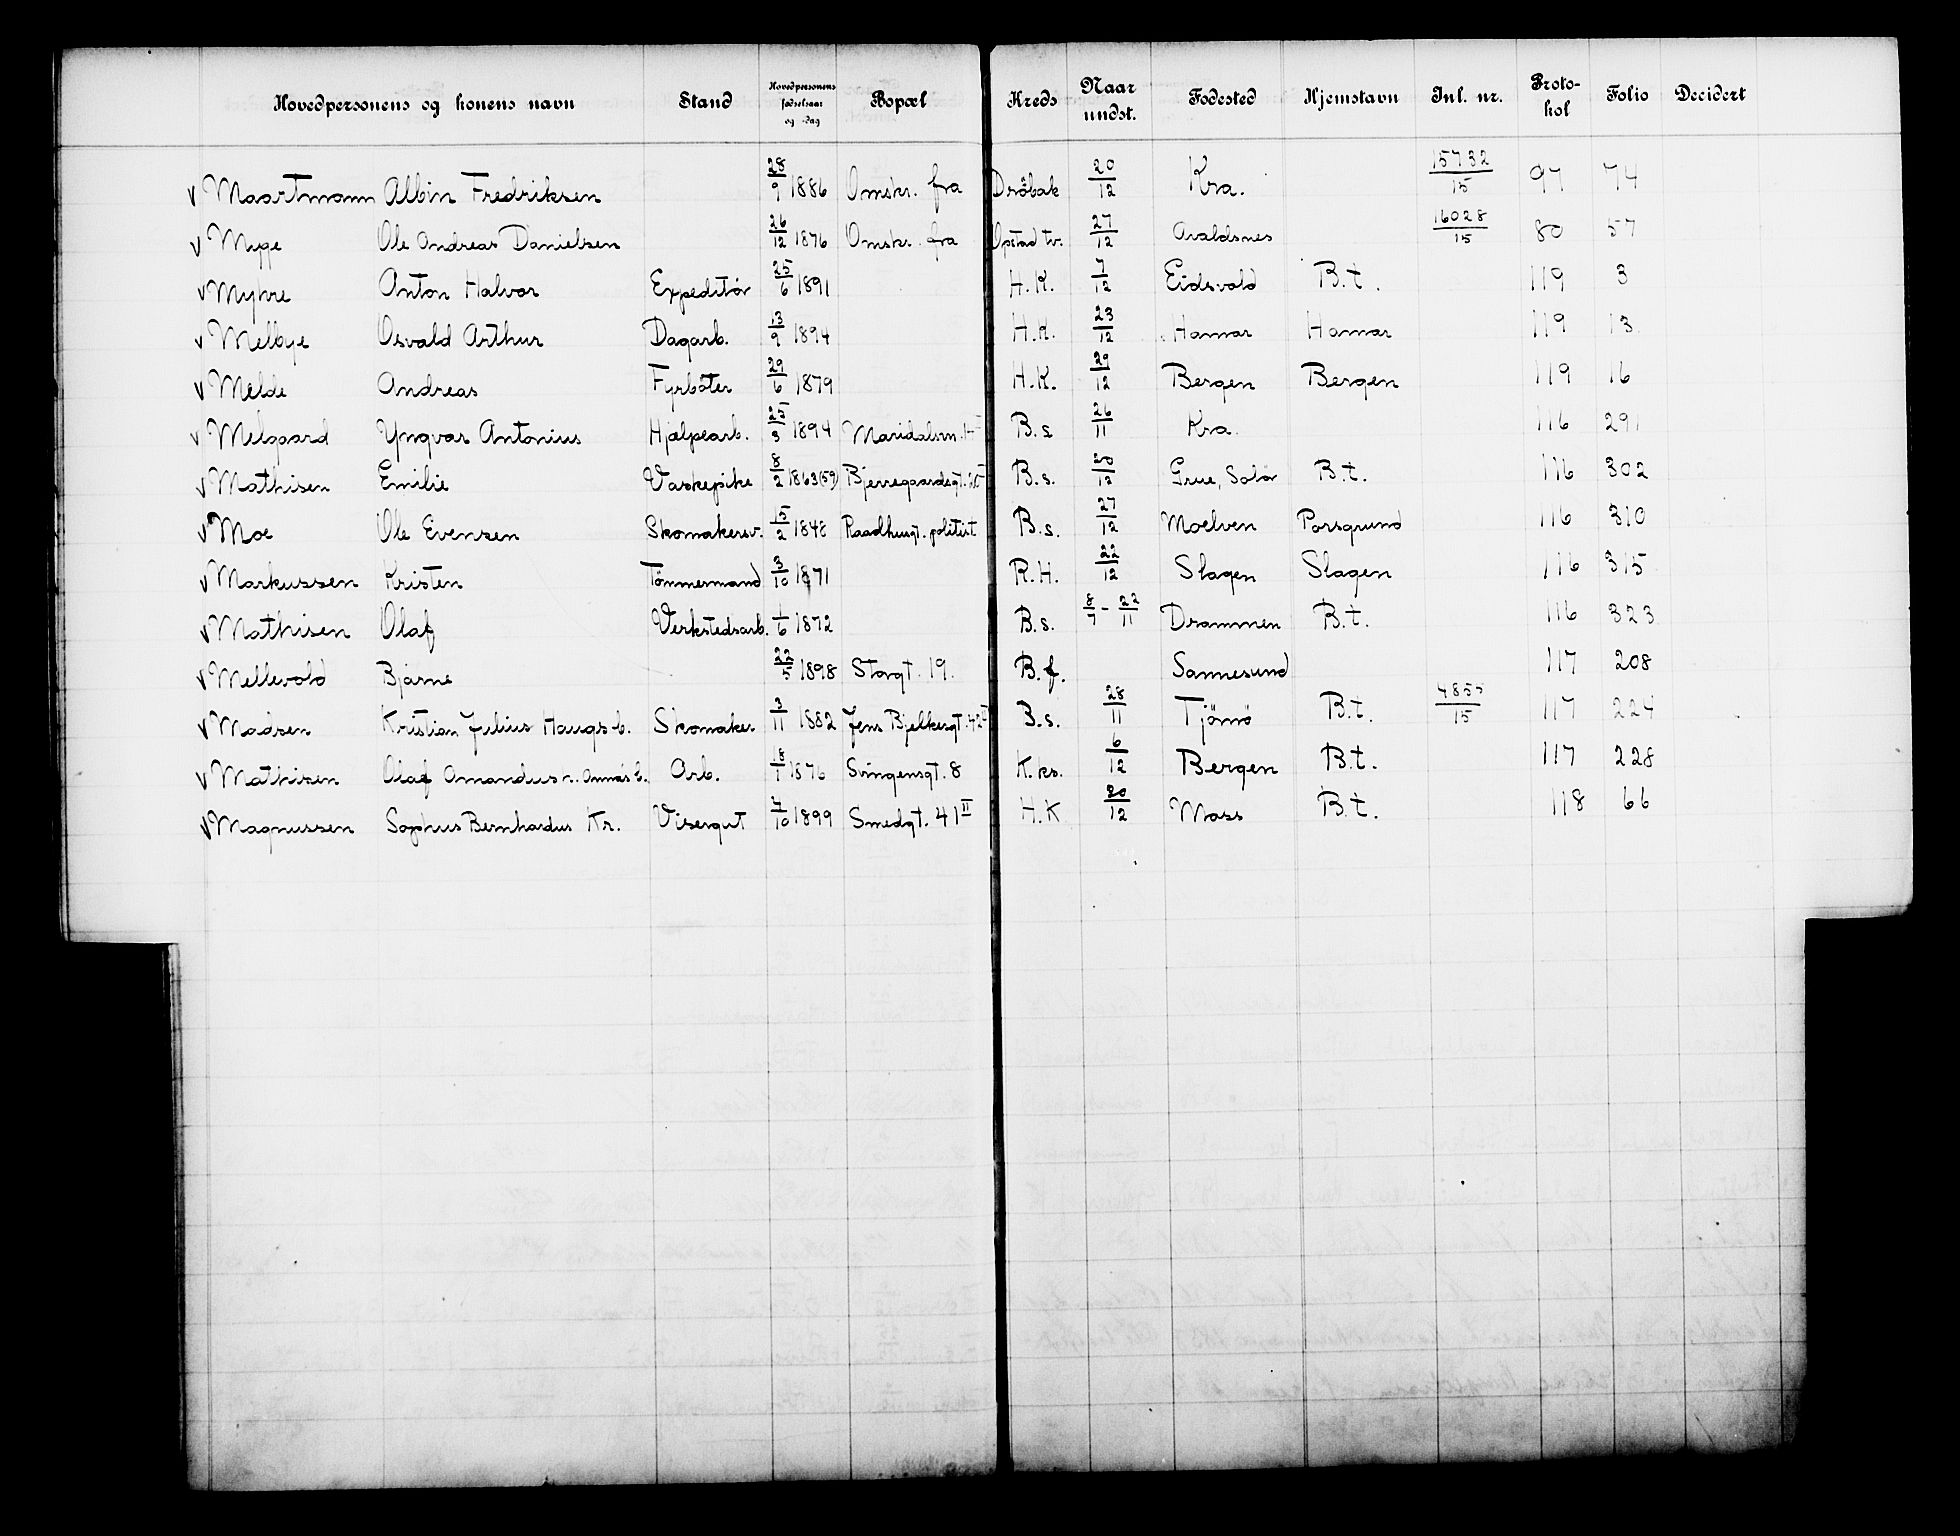 Hovedpersonens og konens navn | Stand | Hovedpersonens fødselsaar og -dag | Bopæl | Kreds | Naar undst. | Fødested | Hjemstavn | Inl. nr. | Protokol | Folio | Decidert
v Maartmann Albin Fredriksen | 28/9 1886 | Omskr. fra | Drøbak | 20/12 | Kra. | 15732/15 | 97 | 74
v Mygge Ole Andreas Danielsen | 26/12 1876 | Omskr. fra | Opstad tv. | 27/12 | Avaldsnes | 16028/15 | 80 | 57
v Myhre Anton Halvor | Expeditør | 25/6 1891 | H.K. | 7/12 | Eidsvold | B.t. | 119 | 3
v Melbye Osvald Arthur | Dagarb. | 13/9 1894 | H.K. | 23/12 | Hamar | Hamar | 119 | 13
v Melde Andreas | Fyrbøter | 29/6 1879 | H.K. | 29/12 | Bergen | Bergen | 119 | 16
v Melgaard Yngvar Antonius | Hjælpearb. | 25/3 1894 | Maridalsvn. | B.s | 26/11 | Kra. | 116 | 291
v Mathisen Emilie | Vaskepike | 8/2 1863(59) | Bjerregaardsgt. | B.s. | 20/12 | Grue, Solør | B.t. | 116 | 302
v Moe Ole Evensen | Skomakersv. | 15/2 1848 | Raadhusgt. politist | B.s. | 27/12 | Moelven | Porsgrund | 116 | 310
v Markussen Kristen | Tømmermand | 3/10 1871 | R.H. | 22/12 | Slagen | Slagen | 116 | 315
v Mathisen Olaf | Verkstedsarb. | 1/6 1872 | B.s. | 8/7 - 22/11 | Drammen | B.t. | 116 | 323
v Mellevold Bjarne | 22/5 1898 | Storgt. 19. | B.f. | Sannesund | 117 | 208
v Madsen Kristian Julius Haugs b. | Skomaker | 3/11 1882 | Jens Bjelkesgt. 42 II | B.s. | 28/11 | Tjømø | B.t. | 4855/15 | 117 | 224
v Mathisen Olaf Amandus n. Annas b. | Arb. | 18/1 1876 | Svingensgt. 8 | K.ks. | 6/12 | Bergen | B.t. | 117 | 228
v Magnussen Sophus Bernhardus Kr. | Visergut | 7/10 1899 | Smedgt. 41 II | H.K | 20/12 | Moss | B.t. | 118 | 66